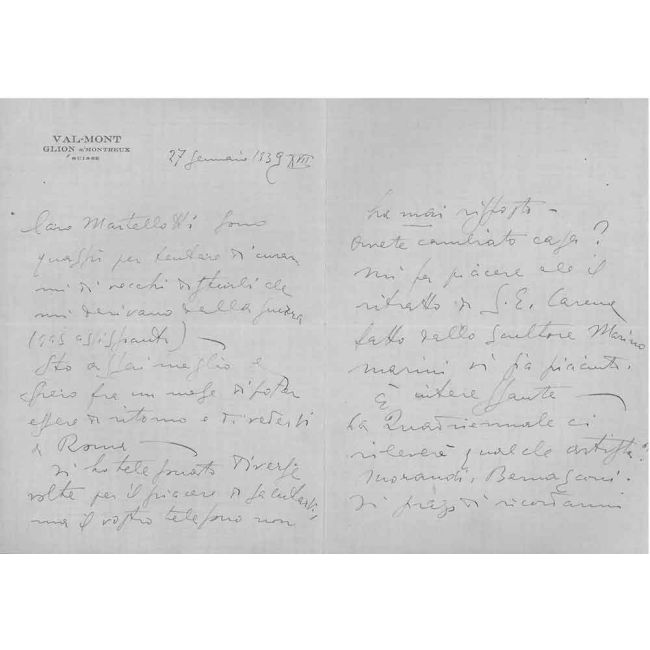 VAL-MONT
GLION s/MONTREUX
SUISSE
27 gennaio 1939 XVII
Caro Martellotti sono
quassù per tentare di curar
mi di vecchi disturbi che
mi derivano dalla guerra
(gas asfissianti) —
Sto assai meglio e
spero fra un mese di poter
essere di ritorno e di vedervi
a Roma —
Vi ho telefonato diverse
volte per il piacere di salutarvi,
ma il vostro telefono non
ha mai risposto —
Avete cambiato casa?
Mi fa piacere che il
ritratto di S. E. Carena
fatto dallo scultore Marino
Marini vi sia piaciuto.
È interessante —
La Quadriennale ci
rileverà qualche artista?
Morandi, Bernasconi.
Vi prego di ricordarmi